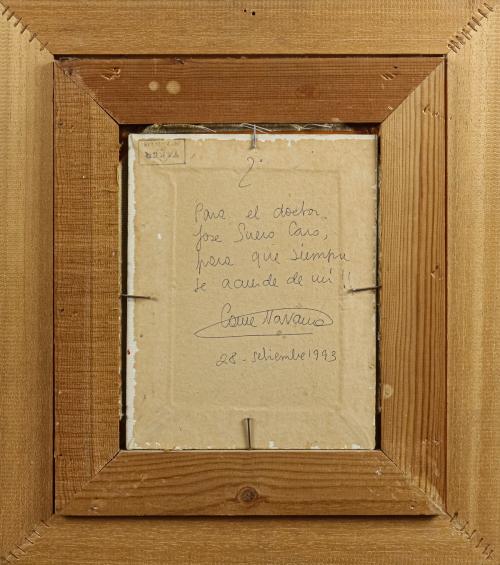 TAKER
2º
Para el doctor
Jose Suero Caro,
para que siempre
se acuerde de mi !!
Come Navarro
28 - setiembre 1993